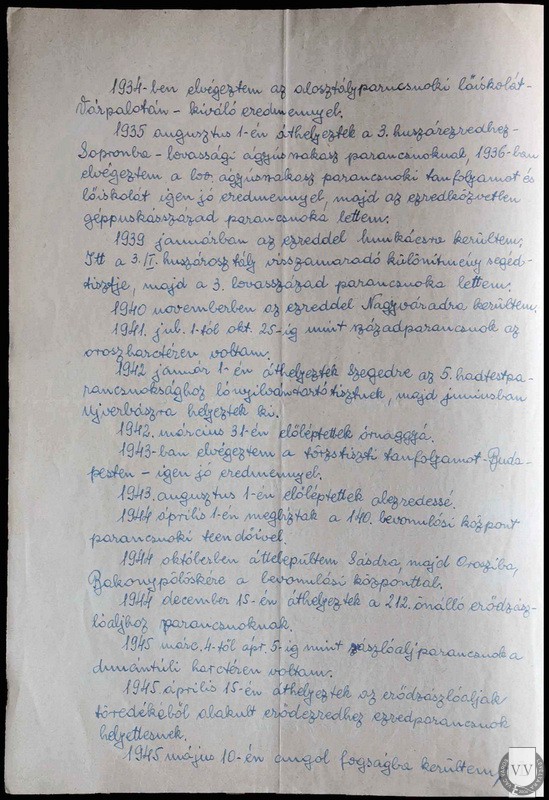 1934-ben elvégeztem az alosztályparancsnoki lőiskolát-
Várpalotán - kiváló eredménnyel.
1935 augusztus 1-én áthelyezték a 3. huszárezredhez-
Sopronba - lovassági ágyússzakasz parancsnoknak, 1936-ban
elvégeztem a lov. ágyússzakasz parancsnoki tanfolyamot és
lőiskolát igen jó eredménnyel, majd az ezredközvetlen
géppuskásszázad parancsnoka lettem.
1939 januárban az ezreddel Munkácsra kerültem,
Itt a 3/II. huszárosztály visszamaradó különítmény segéd-
tisztje, majd a 3. lovasszázad parancsnoka lettem.
1940 novemberben az ezreddel Nagyváradra kerültem.
1941. jul. 1-től okt. 25-ig mint századparancsnok az
orosz harctéren voltam.
1942 január 1-én áthelyezték Szegedre az 5. hadtestpa-
rancsnoksághoz lónyilvántartótisztnek, majd juniusban
Ujverbászra helyeztek ki.
1942. március 31-én előléptettek őrnaggyá.
1943-ban elvégeztem a törzstiszti tanfolyamot - Buda-
pesten - igen jó eredménnyel.
1943. augusztus 1-én előléptettek alezredessé.
1944 április 1-én megbiztak a 140. bevonulási központ
parancsnoki teendőivel.
1944 októberben áttelepültem Sásdra, majd
Bakonypölöskére a bevonulási központtal.
1944 december 15-én áthelyeztek a 212. önálló erődzász-
lóaljhoz parancsnoknak.
1945 márc. 4-től ápr. 5-ig mint zászlóalj parancsnok a
dunántúli harctéren voltam.
1945 április 15-én áthelyeztek az erődzászlóaljak
töredékéből alakult erődezredhez ezredparancsnok
helyettesnek.
1945 május 10-én angol fogságba kerültem
VV